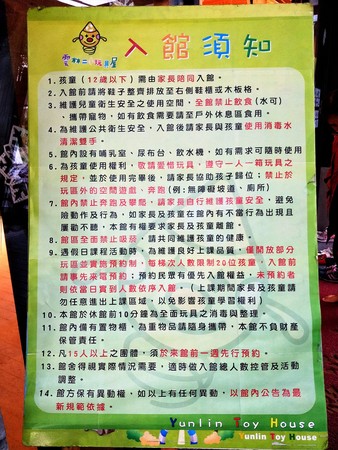 雲林二 玩具屋
入館須知
1. 孩童（12歲以下）需由家長陪同入館。
2. 入館前請將鞋子整齊排放至右側鞋櫃或木板格。
3. 維護兒童衛生安全之使用空間，全館禁止飲食(水可)
、攜帶寵物，如有飲食需要請至戶外休息區食用。
4. 為維護公共衛生安全，入館後請家長與孩童使用消毒水
清潔雙手。
5. 館內設有哺乳室、尿布台、飲水機，如有需求可隨時使用
6. 為孩童使用權利，敬請愛惜玩具，遵守一人一箱玩具之
規定，並於使用完畢後，請家長協助孩子歸位；禁止於
玩區外的空間遊戲、奔跑(例:無障礙坡道、廁所)
7. 館內禁止奔跑及攀爬，請家長自行維護孩童安全，避免
險動作及行為，如家長及孩童在館內有不當行為出現且
屢勸不聽，本館有權要求家長及孩童離館。
8. 館區全面禁止吸菸，請共同維護孩童的健康。
9. 遇假日課程活動時，為維護良好上課品質，僅開放部分
玩區並實施預約制，每梯次人數限制20位孩童，入館前
請事先來電預約；預約民眾有優先入館權益，未預約者
則依當日實到人數依序入館。（上課期間家長及孩童請
勿任意進出上課區域，以免影響孩童學習權利）
10. 本館於休館前10分鐘為全面玩具之消毒與整理。
11. 館內備有置物櫃，為重物品請隨身攜帶，本館不負財產
保管責任。
12. 凡15人以上之團體，須於來館前一週先行預約。
13. 館舍得視實際情況需要，適時做入館總人數控管及活動
調整。
14. 館方保有異動權，如以上有任何異動，以館內公告為最
新規範依據。
Yunlin Toy House
Yunlin Toy House